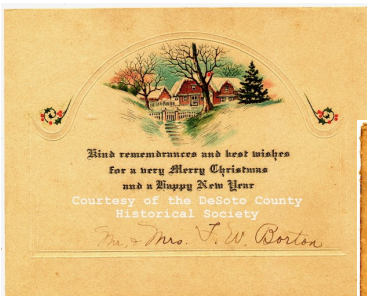 Kind remembrances and best wishes
for a very Merry Christmas
and a Happy New Year
Courtesy of the DeSoto County
Historical Society
Mr. & Mrs. F. W. Borton